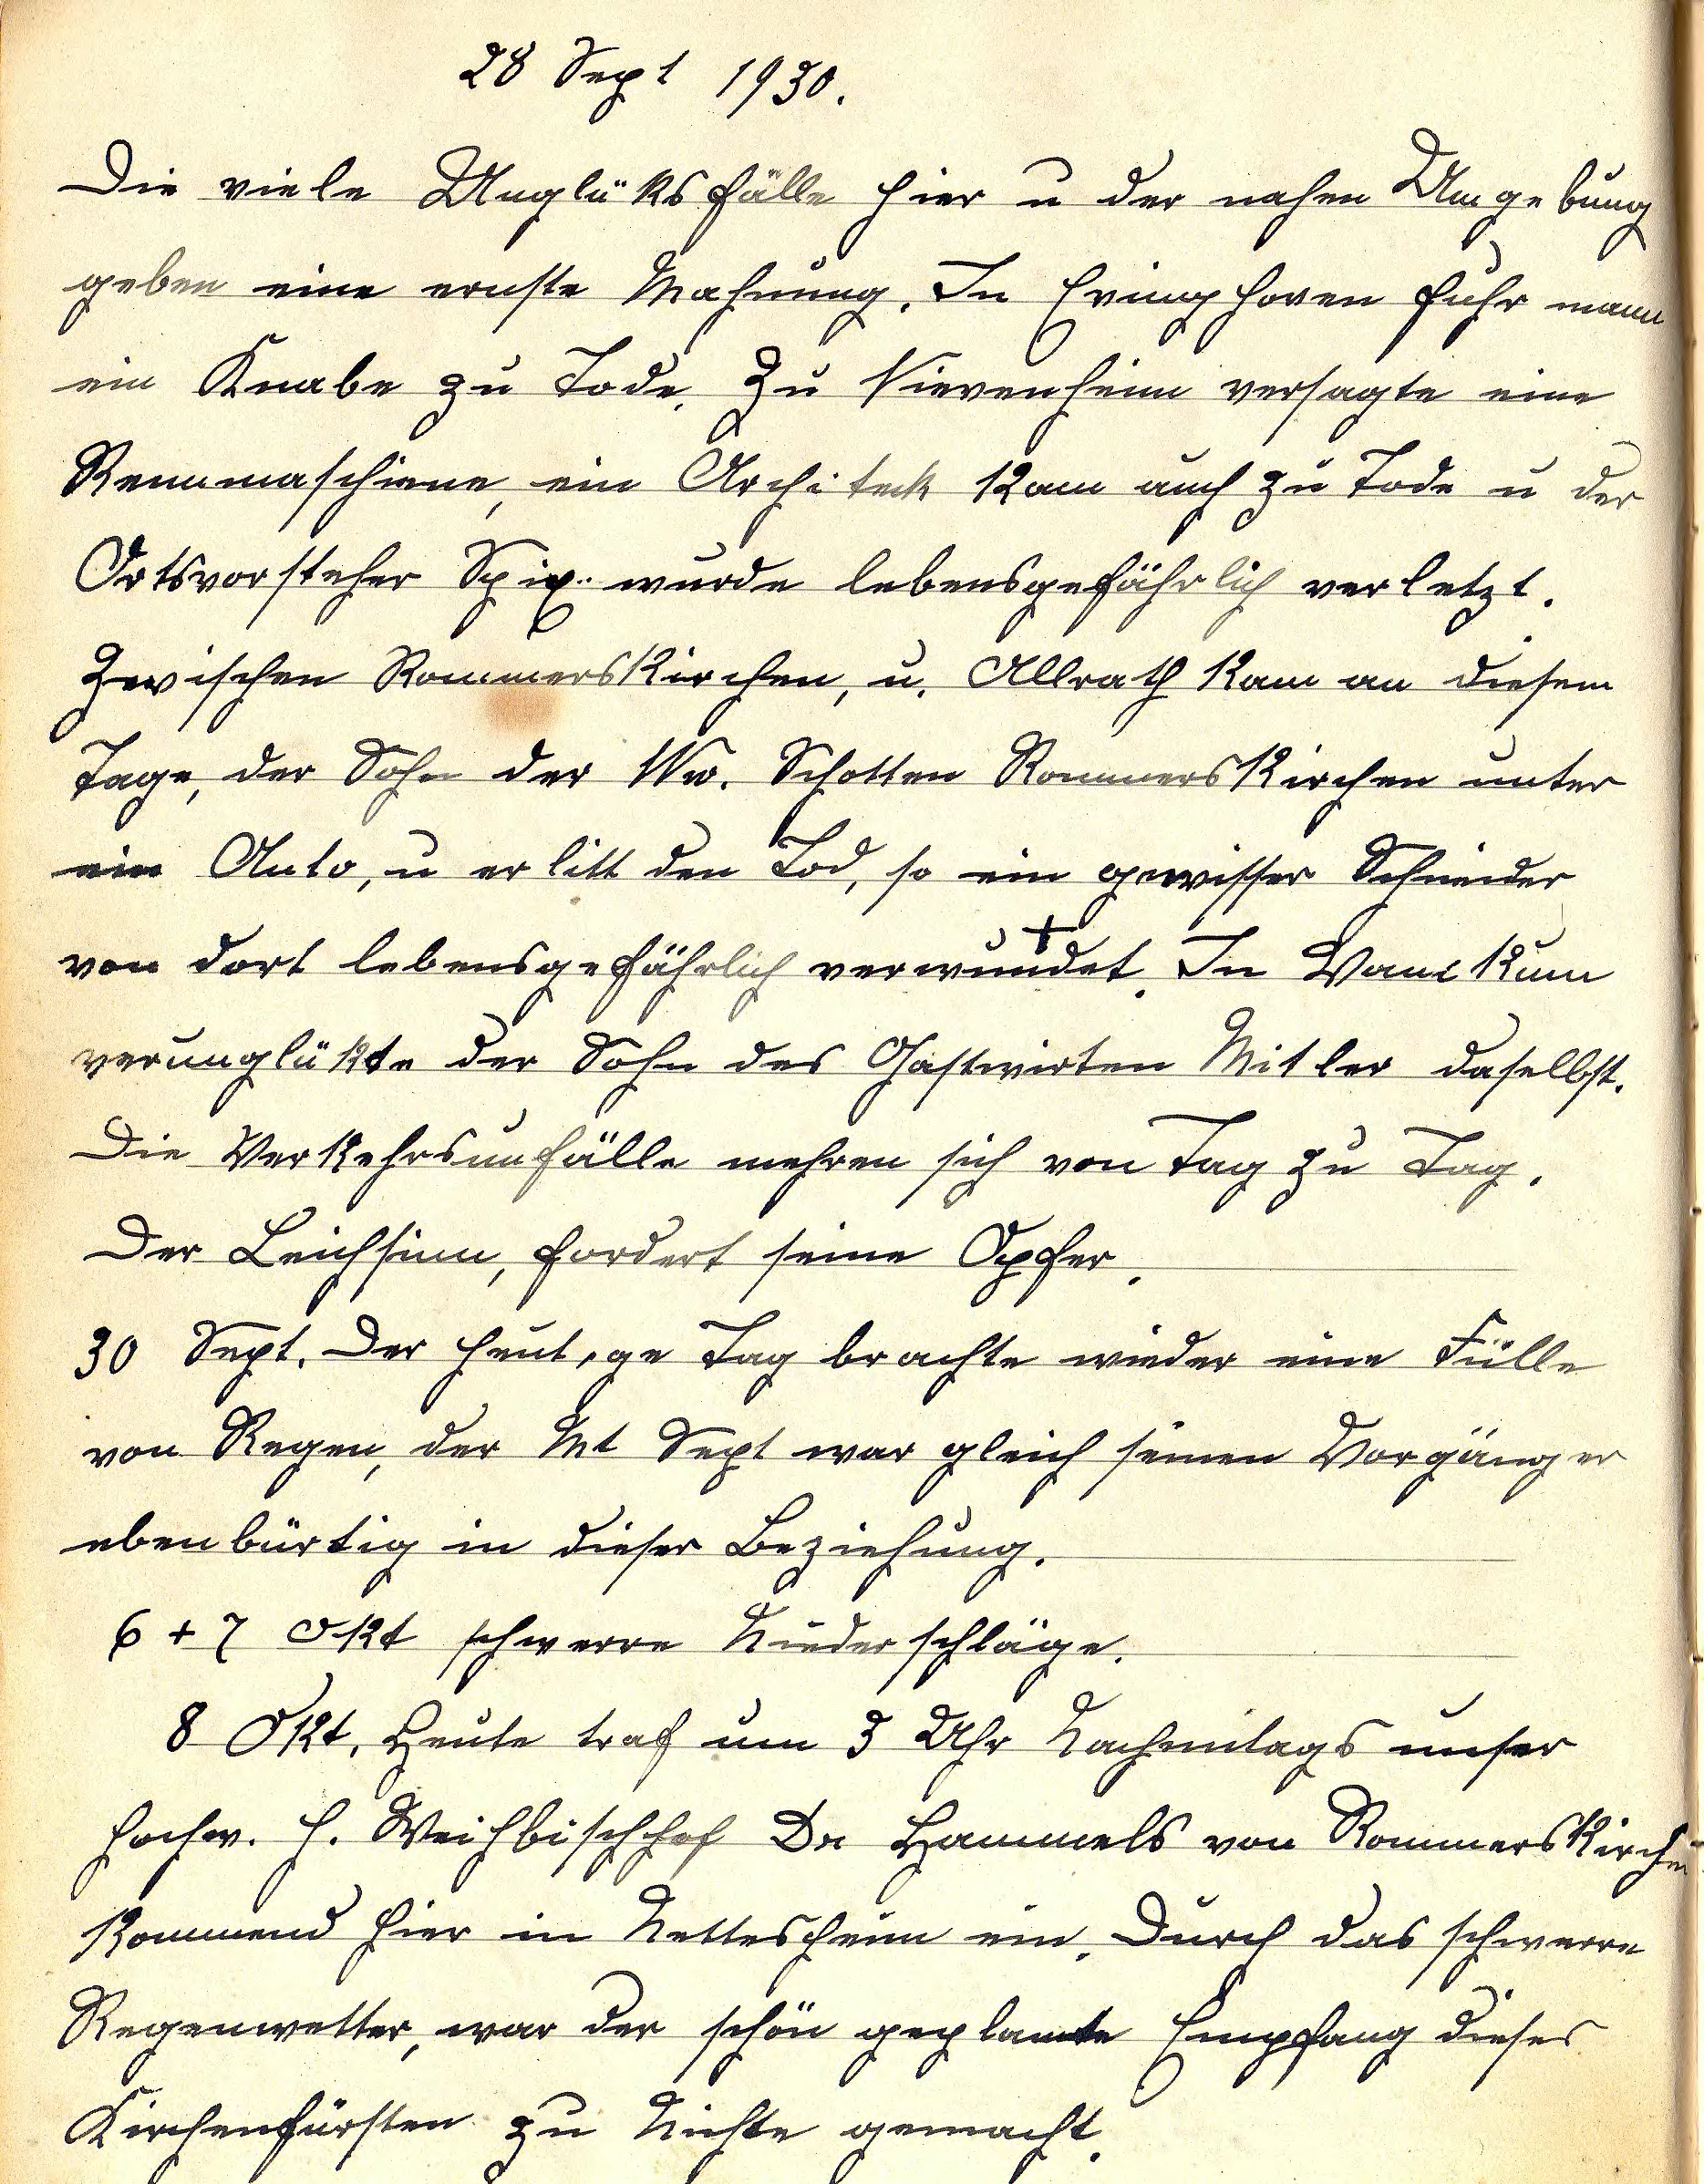 28 Sept 1930.
Die viele Unglüksfälle hier u der nahen Umgebung
geben eine ernste Mahnung. In Evinghoven fuhr mann
ein Knabe zu Tode. Zu Nievenheim versagte eine
Rennmaschiene, ein Architeck kam auch zu Tode u der
Ortsvorsteher Spix.. wurde lebensgefährlich verletzt.
Zwischen Rommerskirchen, u. Allrath kam an diesem
Tage, der Sohn der Ww. Schotten Rommerskirchen unter
ein Auto, u erlitt den Tod, so ein gewisser Schneider
von dort lebensgefährlich verwundet. + In Wanlkum
verunglükte der Sohn des Gastwirten Mitler daselbst.
Die Verkehrsunfälle mehren sich von Tag zu Tag.
Der Leichsinn, fordert seine Opfer.
30 Sept. Der heutige Tag brachte wieder eine Fülle
von Regen, der Mt Sept war gleich seinen Vorgänger
ebenbürtig in dieser Beziehung.
6 + 7 Okt schwerre Niederschläge.
8 Okt. Heute traf um 3 Uhr Nachmitags unser
hochw. H. Weihbischhof Dr Hammels von Rommerskirchen
kommend hier in Nettesheim ein. Durch das schwerre
Regenwetter, war der schön geplante Empfang dieses
Kirchenfürsten zu Nichte gemacht.